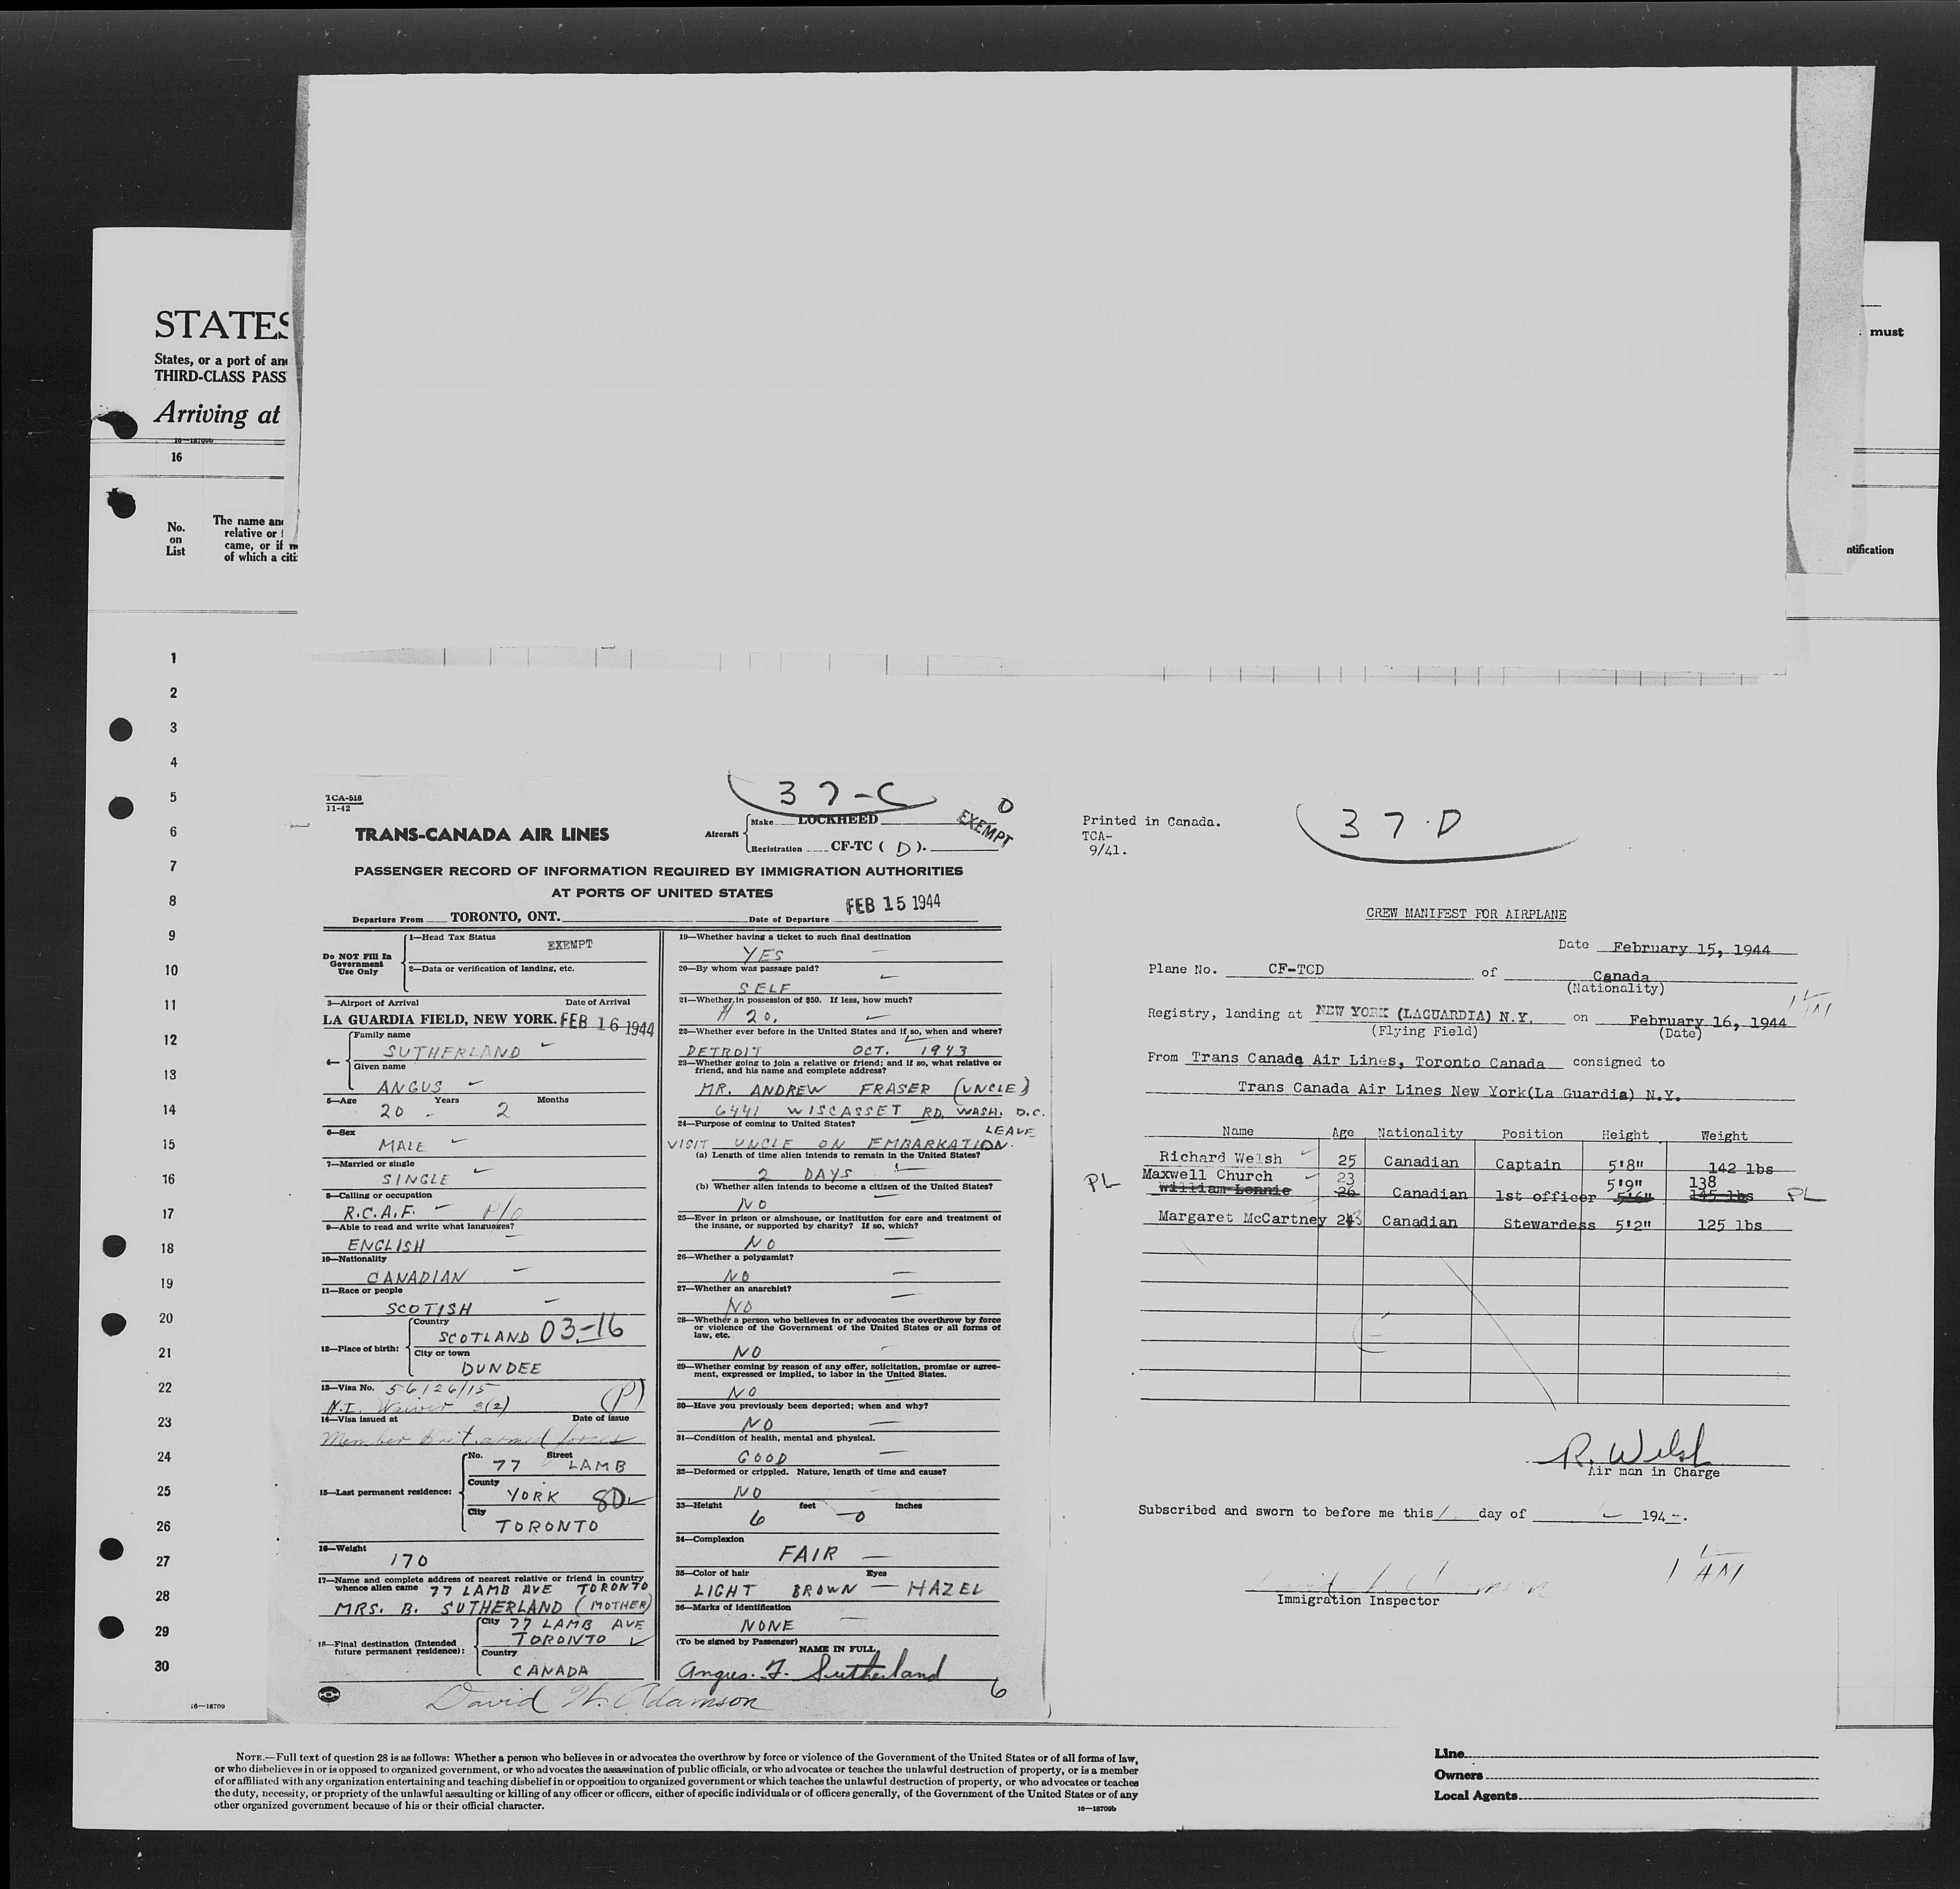 STATES
States, or a port of an
THIRD-CLASS PASS
Arriving at
16—18709b
16
No.
on
List
The name an
relative or
came, or if
of which a citi
must
ntification
1
2
3
4
5
6
7
8
9
10
11
12
13
14
15
16
17
18
19
20
21
22
23
24
25
26
27
28
29
30
16—18709
TCA-518
11-42
37-C
0
EXEMPT
TRANS-CANADA AIR LINES
Aircraft Make LOCKHEED
Registration CF-TC ( D ).
PASSENGER RECORD OF INFORMATION REQUIRED BY IMMIGRATION AUTHORITIES
AT PORTS OF UNITED STATES
Departure From TORONTO, ONT. Date of Departure FEB 15 1944
Do NOT Fill In
Government
Use Only
1—Head Tax Status EXEMPT
2—Data or verification of landing, etc.
3—Airport of Arrival Date of Arrival
LA GUARDIA FIELD, NEW YORK. FEB 16 1944
4— Family name
SUTHERLAND
Given name
ANGUS
5—Age 20 Years 2 Months
6—Sex
MALE
7—Married or single
SINGLE
8—Calling or occupation
R.C.A.F. - P/O
9—Able to read and write what languages?
ENGLISH
10—Nationality
CANADIAN
11—Race or people
SCOTISH
12—Place of birth: Country
SCOTLAND 03-16
City or town
DUNDEE
13—Visa No. 56126/15
N.I. Waiver 3(2) (P)
14—Visa issued at Date of issue
Member Brit. armed forces
15—Last permanent residence: No. Street
77 LAMB
County
YORK 80
City
TORONTO
16—Weight
170
17—Name and complete address of nearest relative or friend in country
whence alien came 77 LAMB AVE TORONTO
MRS. B. SUTHERLAND (MOTHER)
18—Final destination (Intended
future permanent residence): City 77 LAMB AVE
TORONTO
Country
CANADA
David W. Adamson
19—Whether having a ticket to such final destination
YES
20—By whom was passage paid?
SELF
21—Whether in possession of $50. If less, how much?
20.
22—Whether ever before in the United States and if so, when and where?
DETROIT OCT. 1943
23—Whether going to join a relative or friend; and if so, what relative or
friend, and his name and complete address?
MR. ANDREW FRASER (UNCLE)
6441 WISCASSET RD. WASH. D.C.
24—Purpose of coming to United States? LEAVE
VISIT UNCLE ON EMBARKATION.
(a) Length of time alien intends to remain in the United States?
2 DAYS
(b) Whether alien intends to become a citizen of the United States?
NO
25—Ever in prison or almshouse, or institution for care and treatment of
the insane, or supported by charity? If so, which?
NO
26—Whether a polygamist?
NO
27—Whether an anarchist?
NO
28—Whether a person who believes in or advocates the overthrow by force
or violence of the Government of the United States or all forms of
law, etc.
NO
29—Whether coming by reason of any offer, solicitation, promise or agree-
ment, expressed or implied, to labor in the United States.
NO
30—Have you previously been deported; when and why?
NO
31—Condition of health, mental and physical.
GOOD
32—Deformed or crippled. Nature, length of time and cause?
NO
33—Height feet inches
6 0
34—Complexion
FAIR
35—Color of hair Eyes
LIGHT BROWN — HAZEL
36—Marks of identification
NONE
(To be signed by Passenger) NAME IN FULL
Angus. F. Sutherland
6
Printed in Canada.
TCA-
9/41.
37.D
CREW MANIFEST FOR AIRPLANE
Date February 15, 1944
Plane No. CF-TCD of Canada
(Nationality)
Registry, landing at NEW YORK (LAGUARDIA) N.Y. on February 16, 1944
(Flying Field) (Date)
From Trans Canada Air Lines, Toronto Canada consigned to
Trans Canada Air Lines New York(La Guardia) N.Y.
Name Age Nationality Position Height Weight
Richard Welsh 25 Canadian Captain 5'8" 142 lbs
Maxwell Church 23 5'9" 138
PL William Lennie 26 Canadian 1st officer 5'6" 145 lbs PL
Margaret McCartney 23 Canadian Stewardess 5'2" 125 lbs
R. Welsh
Air man in Charge
Subscribed and sworn to before me this day of 194 .
Immigration Inspector
NOTE.—Full text of question 28 is as follows: Whether a person who believes in or advocates the overthrow by force or violence of the Government of the United States or of all forms of law,
or who disbelieves in or is opposed to organized government, or who advocates the assassination of public officials, or who advocates or teaches the unlawful destruction of property, or is a member
of or affiliated with any organization entertaining and teaching disbelief in or opposition to organized government or which teaches the unlawful destruction of property, or who advocates or teaches
the duty, necessity, or propriety of the unlawful assaulting or killing of any officer or officers, either of specific individuals or of officers generally, of the Government of the United States or of any
other organized government because of his or their official character.
16—18709b
Line
Owners
Local Agents